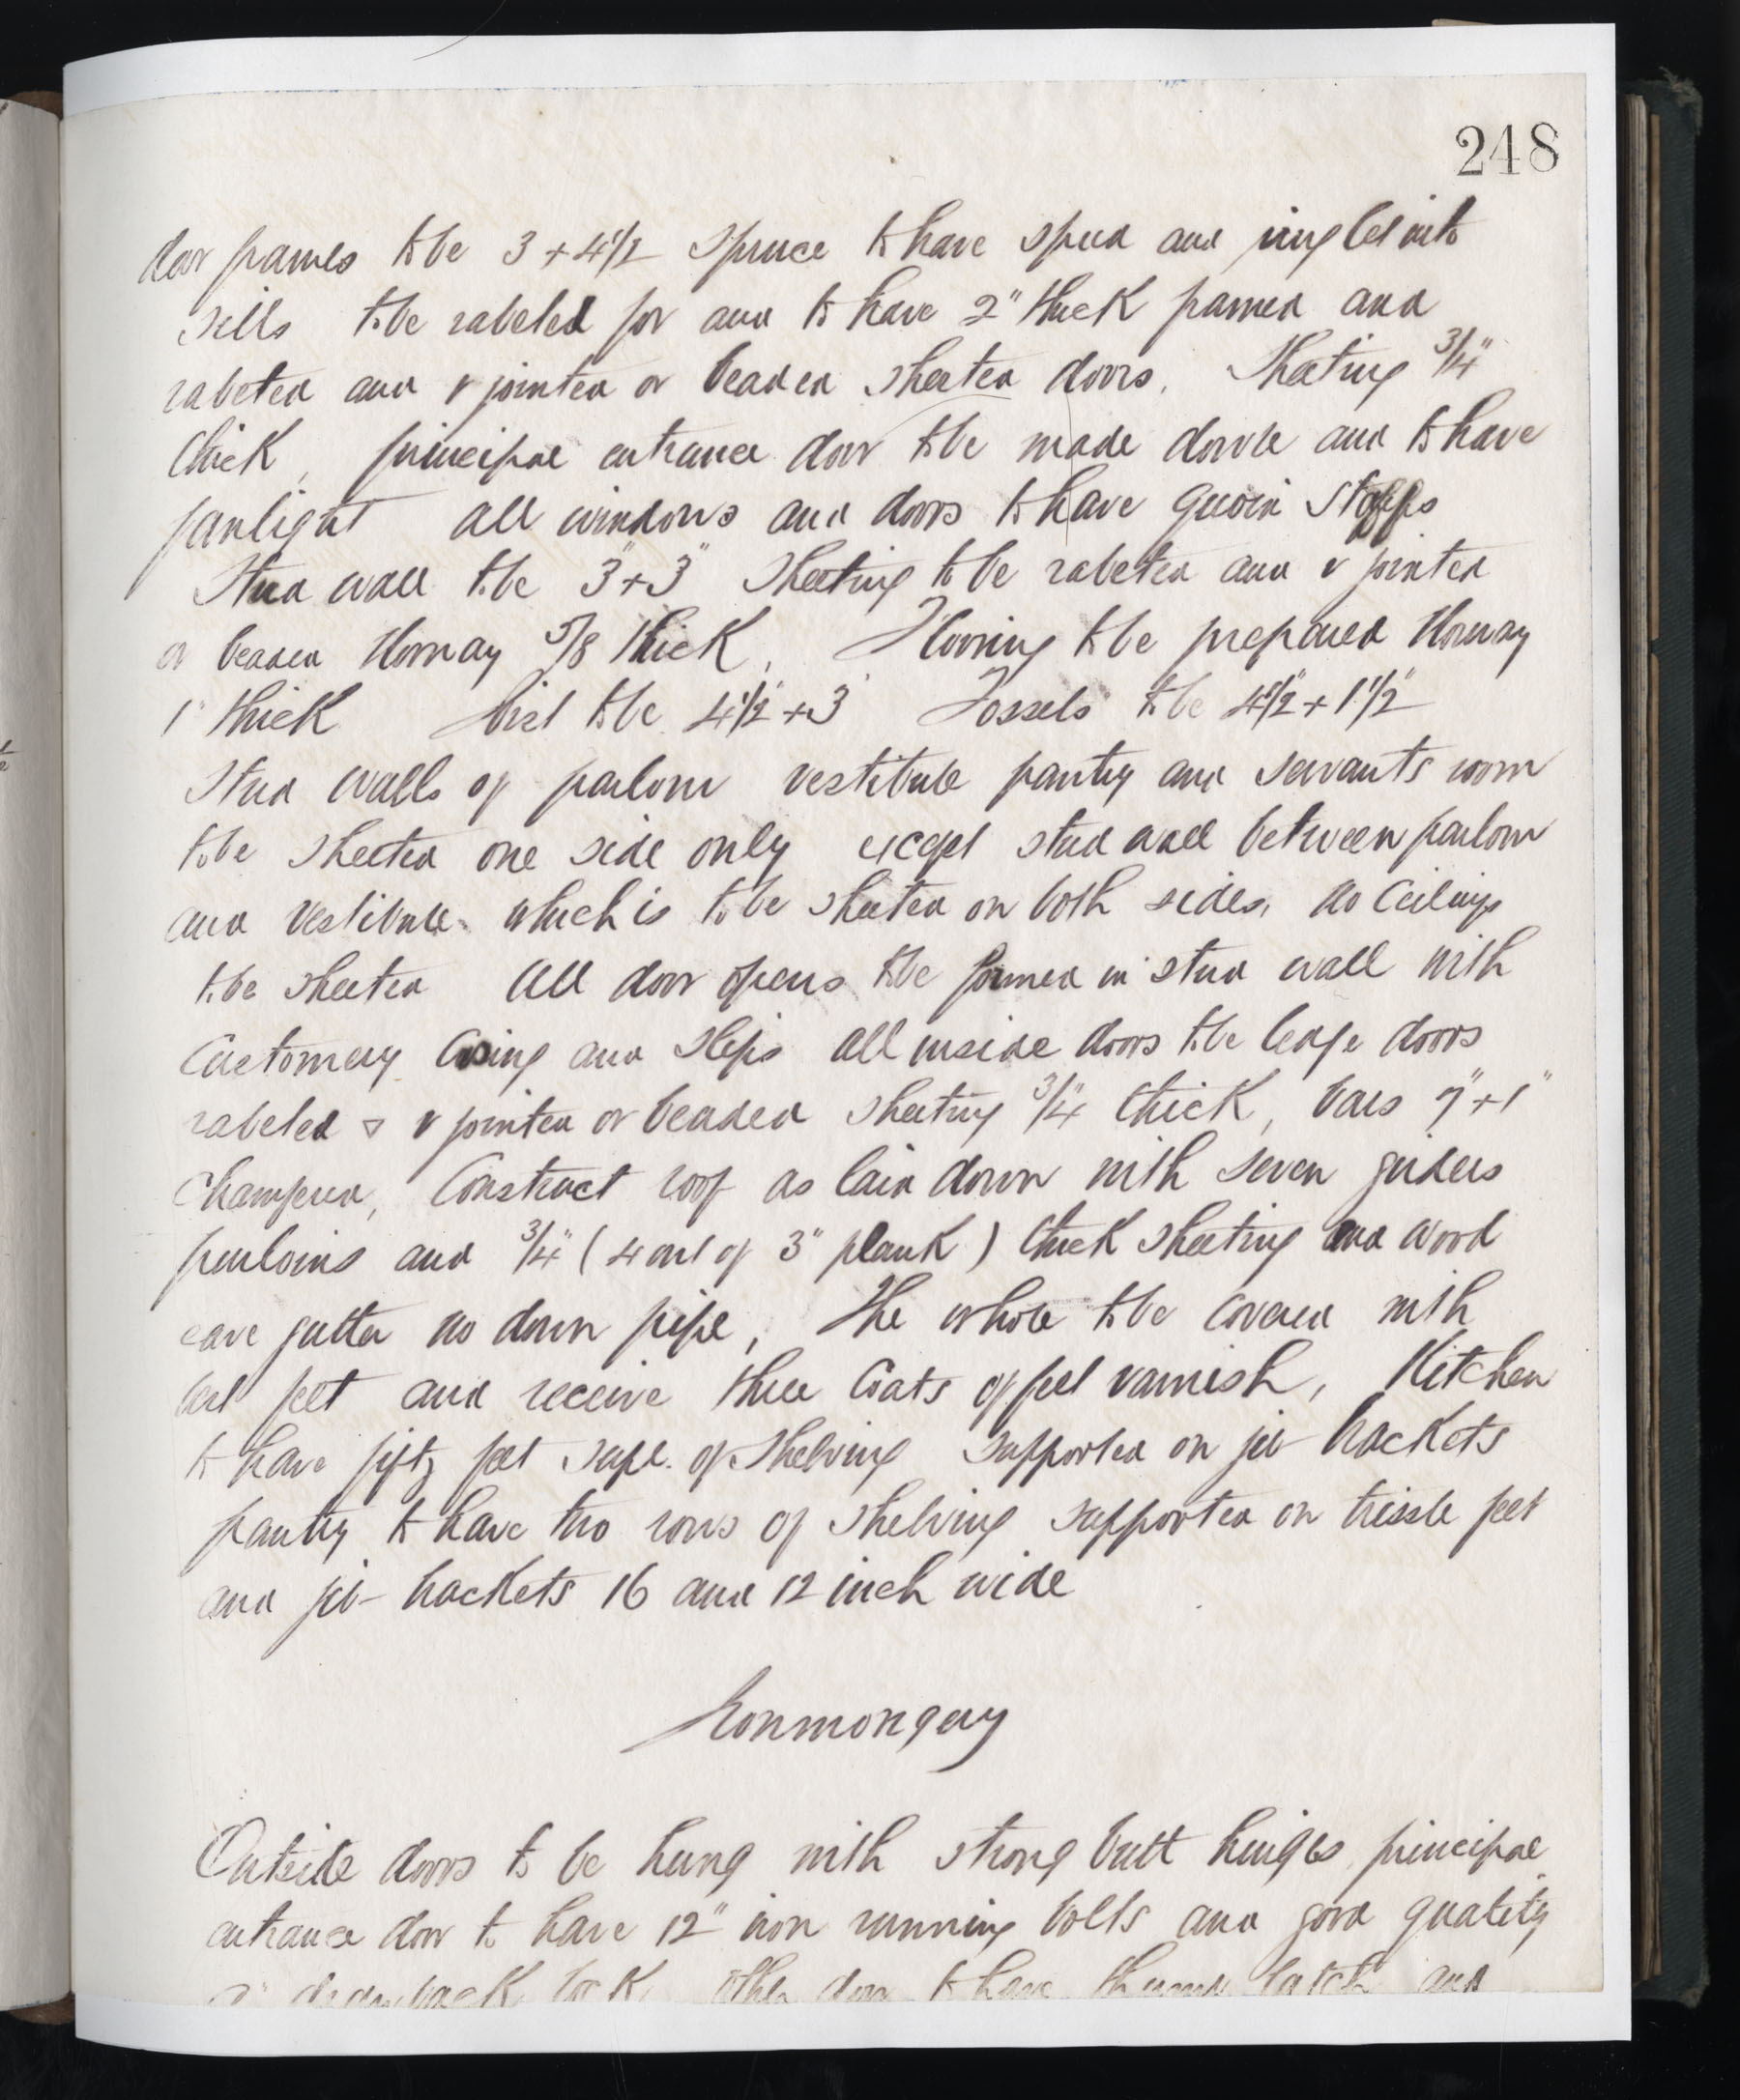 248
door frames to be 3 + 4½ Spruce to have spud and ring let into
sills to be rabeted for and to have 2" thick framed and
rabeted and v jointed or beaded sheeted doors. Sheeting ¾"
thick, principal entrance door to be made double and to have
fanlight all windows and doors to have quoin stopps
Stud wall to be 3" + 3" Sheeting to be rabeted and v jointed
or beaded Norway 5/8 thick, Flooring to be prepared Norway
1" thick Joist to be 4½" + 3" Tossels to be 4½" + 1½"
Stud walls of parlour vestibule pantry and servants room
to be sheeted one side only except stud wall between parlour
and vestibule which is to be sheeted on both sides, no ceilings
to be sheeted All door opens to be formed in stud wall with
Customary Casing and Slips all inside doors to be ledge doors
rabeted & v jointed or beaded sheeting ¾" thick, bars 7" + 1"
Champered, Construct roof as laid down with seven girders
purloins and ¾" (4 out of 3" plank) thick sheeting and wood
eave gutter no down pipe, The whole to be covered with
best felt and receive three Coats of felt varnish, Kitchen
to have fifty feet supl. of Shelving supported on jib brackets
pantry to have two rows of shelving supported on trissle feet
and jib brackets 16 and 12 inch wide
Ironmongery
Outside doors to be hung with strong butt hinges principal
entrance door to have 12" iron running bolts and good quality
drawback lock, other door to have thumb latch and